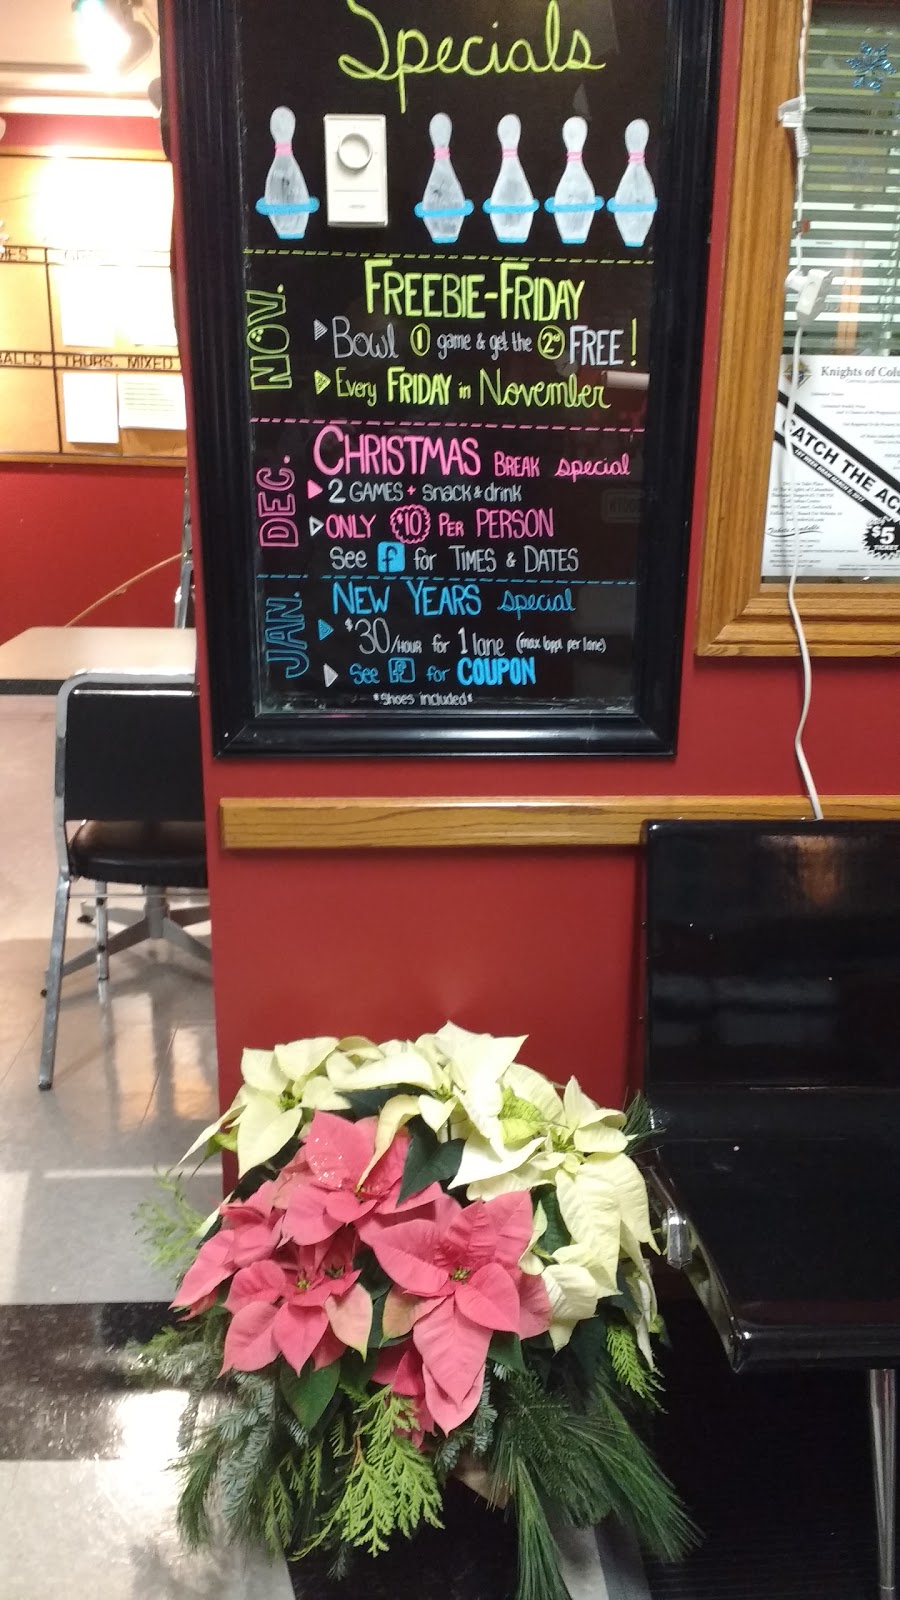 Specials
NOV.
FREEBIE-FRIDAY
Bowl 1 game & get the 2nd FREE!
Every FRIDAY in November
DEC.
CHRISTMAS BREAK special
2 GAMES + snack & drink
ONLY $10 PER PERSON
See f for TIMES & DATES
JAN.
NEW YEARS special
$30/HOUR for 1 lane (max 6ppl per lane)
See f for COUPON
*Shoes included*
THURS. MIXED
Knights of Colu
CATCH THE AC
$5
TICKET